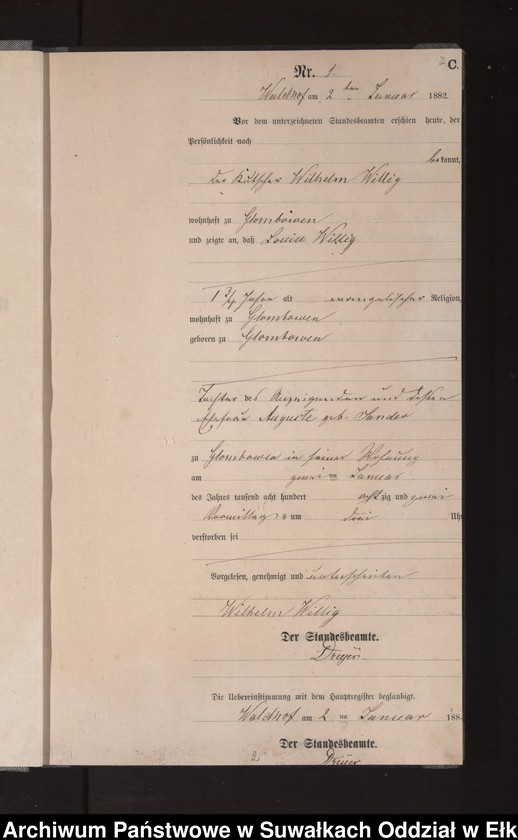 2 C.
Nr. 1.
Waldhof am 2 ten Januar 1882.
Vor dem unterzeichneten Standesbeamten erschien heute, der
Persönlichkeit nach
bekannt,
der Kutscher Wilhelm Willig
wohnhaft zu Glombowen
und zeigte an, daß Louise Willig
1 3/4 Jahre alt evangelischer Religion,
wohnhaft zu Glombowen
geboren zu Glombowen
Tochter des Anzeigenden und dessen
Ehefrau Auguste geb. Sander
zu Glombowen in seiner Wohnung
am zwei ten Januar
des Jahres tausend acht hundert achtzig und zwei
Vormittags um drei Uhr
verstorben sei
Vorgelesen, genehmigt und unterschrieben
Wilhelm Willig
Der Standesbeamte.
Die Uebereinstimmung mit dem Hauptregister beglaubigt.
Waldhof am 2 ten Januar 188
Der Standesbeamte.
2
Archiwum Państwowe w Suwałkach Oddział w Ełk